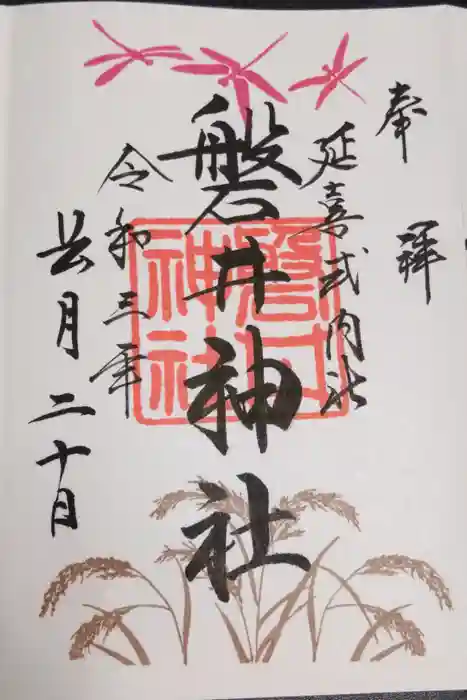 奉拝
延喜式内社
磐井神社
令和三年
長月二十日
磐井
神社